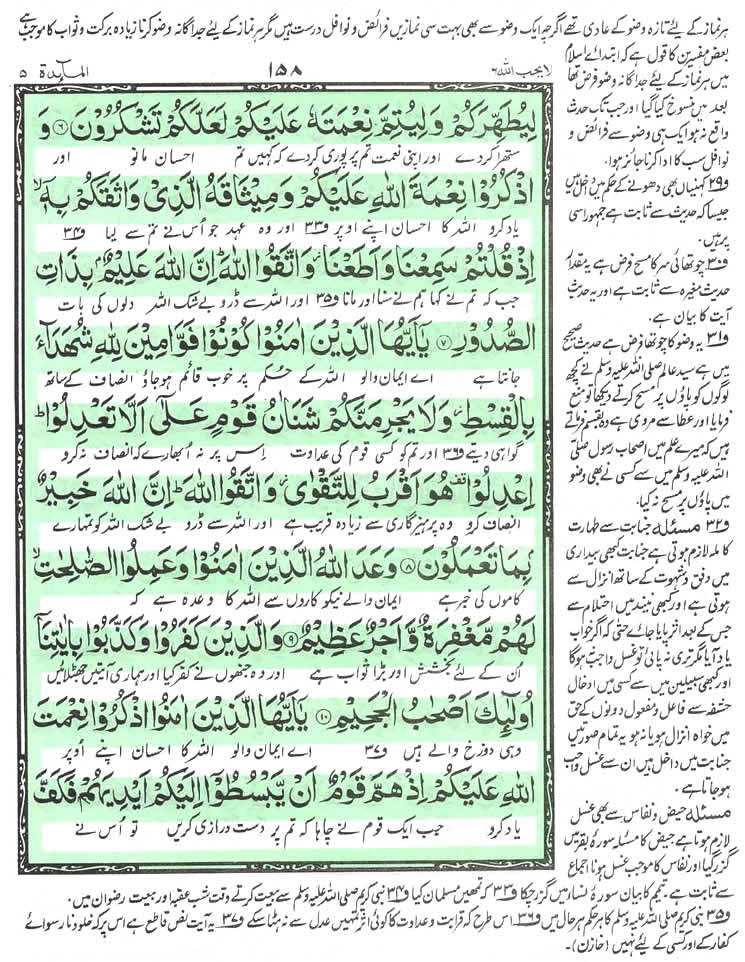 ہر نماز کے لیئے تازہ وضو کے عادی تھے اگرچہ ایک وضو سے بھی بہت سی نمازیں فرائض و نوافل درست ہیں مگر ہر نماز کے لیئے جداگانہ وضو کرنا زیادہ برکت و ثواب کا موجب ہے
لا یحب اللہ ٦ ١٥٨ المآئدة ٥
لِيُطَهِّرَكُمْ وَلِيُتِمَّ نِعْمَتَهٗ عَلَيْكُمْ لَعَلَّكُمْ تَشْكُرُوْنَ ﴿٦﴾ وَ
ستھرا کر دے اور اپنی نعمت تم پر پوری کر دے کہ کہیں تم احسان مانو اور
اذْكُرُوْا نِعْمَةَ اللّٰهِ عَلَيْكُمْ وَمِيْثَاقَهُ الَّذِيْ وَاثَقَكُمْ بِهٖٓ ۙ
یاد کرو اللہ کا احسان اپنے اوپر ف٣٣ اور وہ عہد جو اُس نے تم سے لیا ف٣٤
اِذْ قُلْتُمْ سَمِعْنَا وَاَطَعْنَا ۫ وَاتَّقُوا اللّٰهَ ؕ اِنَّ اللّٰهَ عَلِيْمٌۢ بِذَاتِ
جب کہ تم نے کہا ہم نے سنا اور مانا ف٣٥ اور اللہ سے ڈرو بے شک اللہ دلوں کی بات
الصُّدُوْرِ ﴿٧﴾ يٰٓاَيُّهَا الَّذِيْنَ اٰمَنُوْا كُوْنُوْا قَوّٰمِيْنَ لِلّٰهِ شُهَدَآءَ
جانتا ہے اے ایمان والو اللہ کے حکم پر خوب قائم ہو جاؤ انصاف کے ساتھ
بِالْقِسْطِ ۫ وَلَا يَجْرِمَنَّكُمْ شَنَاٰنُ قَوْمٍ عَلٰٓى اَلَّا تَعْدِلُوْا ؕ
گواہی دیتے ف٣٦ اور تم کو کسی قوم کی عداوت اس پر نہ اُبھارے کہ انصاف نہ کرو
اِعْدِلُوْا ۫ هُوَ اَقْرَبُ لِلتَّقْوٰى ۫ وَاتَّقُوا اللّٰهَ ؕ اِنَّ اللّٰهَ خَبِيْرٌۢ
انصاف کرو وہ پرہیزگاری سے زیادہ قریب ہے اور اللہ سے ڈرو بے شک اللہ کو تمہارے
بِمَا تَعْمَلُوْنَ ﴿٨﴾ وَعَدَ اللّٰهُ الَّذِيْنَ اٰمَنُوْا وَعَمِلُوا الصّٰلِحٰتِ ۙ
کاموں کی خبر ہے ایمان والے نیکو کاروں سے اللہ کا وعدہ ہے کہ
لَهُمْ مَّغْفِرَةٌ وَّاَجْرٌ عَظِيْمٌ ﴿٩﴾ وَالَّذِيْنَ كَفَرُوْا وَكَذَّبُوْا بِاٰيٰتِنَآ
اُن کے لئے بخشش اور بڑا ثواب ہے اور وہ جنھوں نے کفر کیا اور ہماری آیتیں جھٹلائیں
اُولٰٓئِكَ اَصْحٰبُ الْجَحِيْمِ ﴿١٠﴾ يٰٓاَيُّهَا الَّذِيْنَ اٰمَنُوا اذْكُرُوْا نِعْمَتَ
وہی دوزخ والے ہیں ف٣٧ اے ایمان والو اللہ کا احسان اپنے اُوپر
اللّٰهِ عَلَيْكُمْ اِذْ هَمَّ قَوْمٌ اَنْ يَّبْسُطُوْٓا اِلَيْكُمْ اَيْدِيَهُمْ فَكَفَّ
یاد کرو جب ایک قوم نے چاہا کہ تم پر دست درازی کریں تو اُس نے
بعض مفسرین کا قول ہے کہ ابتدائے اسلام
میں ہر نماز کے لیئے جداگانہ وضو فرض تھا
بعد میں منسوخ کیا گیا اور جب تک حدث
واقع نہ ہو ایک ہی وضو سے فرائض و
نوافل سب کا ادا کرنا جائز ہوا۔
ف٢٩ کہنیاں بھی دھونے کے حکم میں داخل ہیں
جیسا کہ حدیث سے ثابت ہے جمہور اسی
پر ہیں۔
ف٣٠ چوتھائی سر کا مسح فرض ہے یہ مقدار
حدیث مغیرہ سے ثابت ہے اور یہ حدیث
آیت کا بیان ہے۔
ف٣١ یہ وضو کا چوتھا فرض ہے حدیث صحیح
میں ہے سید عالم صلی اللہ علیہ وسلم نے کچھ
لوگوں کو پاؤں پر مسح کرتے دیکھا تو منع
فرمایا اور عطا سے مروی ہے وہ بقسم فرماتے
ہیں کہ میرے علم میں اصحاب رسول صلی
اللہ علیہ وسلم میں سے کسی نے بھی وضو
میں پاؤں پر مسح نہ کیا۔
ف٣٢ مسئلہ جنابت سے طہارت
کاملہ لازم ہوتی ہے جنابت کبھی بیداری
میں دفق و شہوت کے ساتھ انزال سے
ہوتی ہے اور کبھی نیند میں احتلام سے
جس کے بعد اثر پایا جائے حتی کہ اگر خواب
یاد آیا مگر تری نہ پائی تو غسل واجب نہ ہوگا
اور کبھی سبیلین میں سے کسی میں ادخال
حشفہ سے فاعل و مفعول دونوں کے حق
میں خواہ انزال ہو یا نہ ہو یہ تمام صورتیں
جنابت میں داخل ہیں ان سے غسل واجب
ہو جاتا ہے۔
مسئلہ حیض و نفاس سے بھی غسل
لازم ہوتا ہے حیض کا مسئلہ سورۂ بقر میں
گزر گیا اور نفاس کا موجب غسل ہونا اجماع
سے ثابت ہے۔ تیمم کا بیان سورۂ نساء میں گزر چکا ف٣٣ کہ تمھیں مسلمان کیا ف٣٤ نبی کریم صلی اللہ علیہ وسلم سے بیعت کرتے وقت شب عقبہ اور بیعت رضوان میں۔
ف٣٥ نبی کریم صلی اللہ علیہ وسلم کا ہر حکم ہر حال میں ف٣٦ اس طرح کہ قرابت و عداوت کا کوئی اثر تمہیں عدل سے نہ ہٹا سکے ف٣٧ یہ آیت نص قاطع ہے اس پر کہ خلود نار سوائے
کفار کے اور کسی کے لئے نہیں (خازن)۔